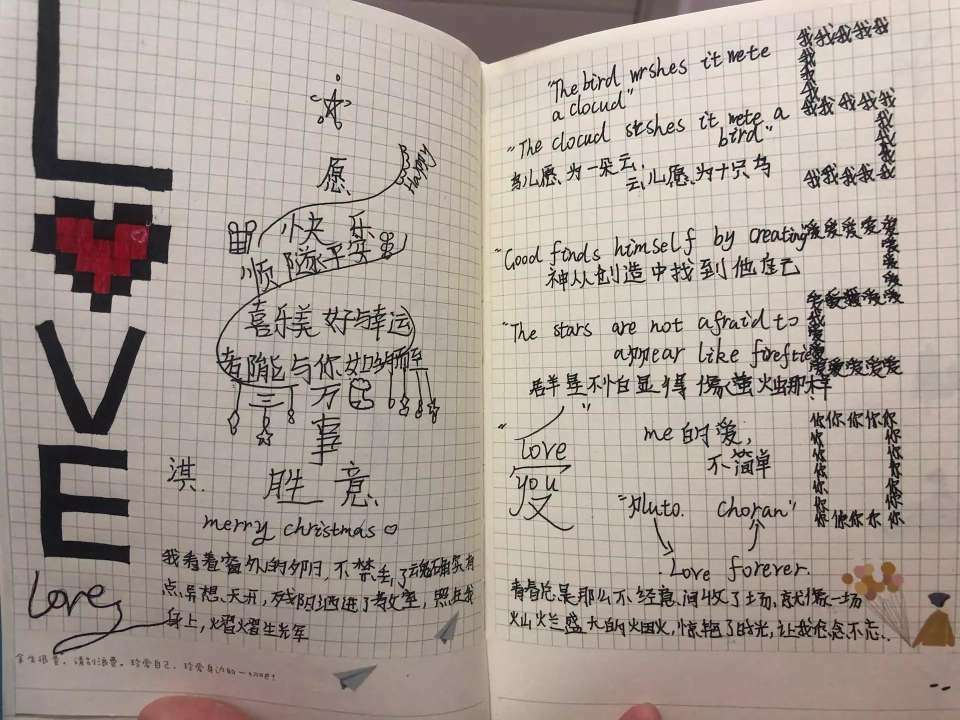 LOVE
Happy
愿
快 乐
顺 隧平安
喜乐美 好与幸运
都能与你如约而至
三 万
事
淇. 胜 意
merry christmas♡
我看着窗外的夕阳,不禁丢了魂确实有
点异想天开,残阳洒进了教室,照在我
身上,熠熠生光辉
Love
余生很贵,请别浪费。珍爱自己,珍爱身边的一切吧!
"The bird wishes it wete
a cloud"
"The cloud wishes it wete a
bird"
鸟儿愿为一朵云,
云儿愿为一只鸟
"Good finds himself by creating
神从创造中找到他自己
"The stars are not afraid to
appear like fireflies
群星不怕显得像萤火虫那样
"
love
you
又
me的爱,
不简单
"pluto. choran"
Love forever.
青春总是那么不经意间收了场,就像一场
灿烂盛大的烟火,惊艳了时光,让我念念不忘.
我我我我我
我
我
我
我我我我我
我
我
我
我我我我我
爱爱爱爱爱
爱
爱
爱
爱爱爱爱爱
爱
爱
爱
爱爱爱爱爱
你你你你你
你 你
你 你
你 你
你 你
你 你
你你你你你